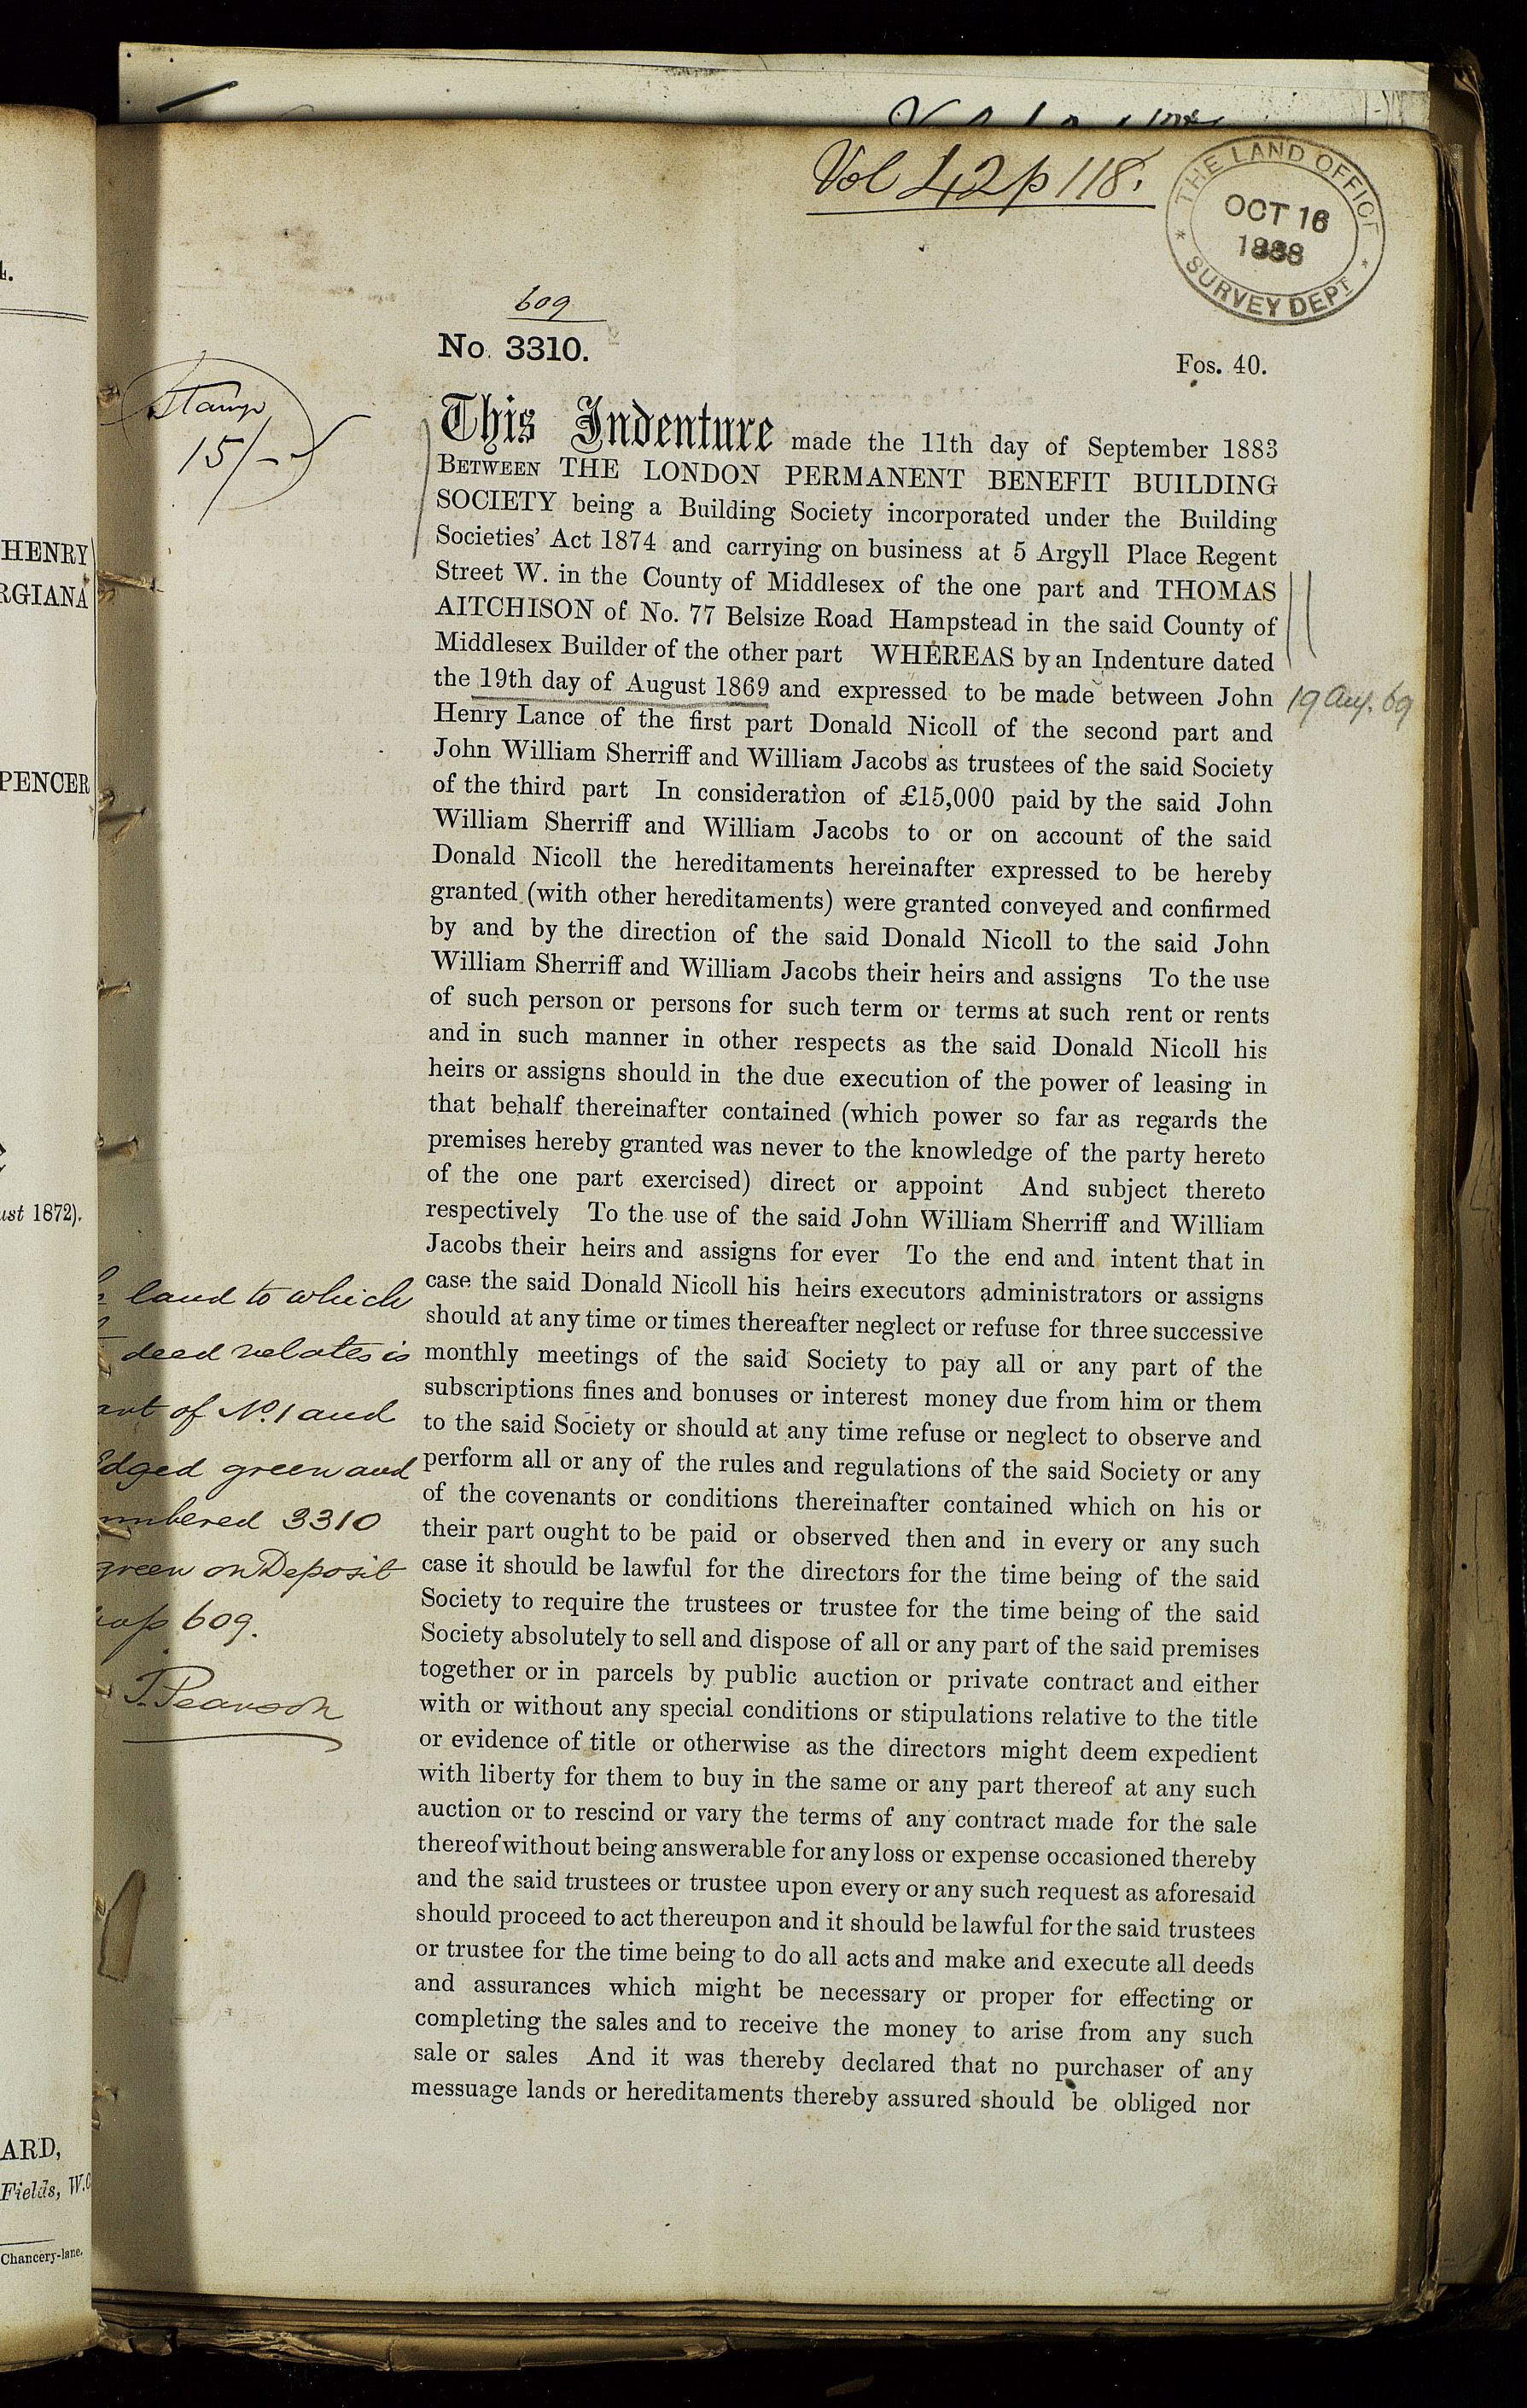 Vol 42 p 118.
THE LAND OFFICE
OCT 16
1888
SURVEY DEPT
609
No. 3310.
Fos. 40.
Stamp
15/-
This Indenture made the 11th day of September 1883
BETWEEN THE LONDON PERMANENT BENEFIT BUILDING
SOCIETY being a Building Society incorporated under the Building
Societies' Act 1874 and carrying on business at 5 Argyll Place Regent
Street W. in the County of Middlesex of the one part and THOMAS
AITCHISON of No. 77 Belsize Road Hampstead in the said County of
Middlesex Builder of the other part WHEREAS by an Indenture dated
the 19th day of August 1869 and expressed to be made between John
19 Aug. 69
Henry Lance of the first part Donald Nicoll of the second part and
John William Sherriff and William Jacobs as trustees of the said Society
of the third part In consideration of £15,000 paid by the said John
William Sherriff and William Jacobs to or on account of the said
Donald Nicoll the hereditaments hereinafter expressed to be hereby
granted (with other hereditaments) were granted conveyed and confirmed
by and by the direction of the said Donald Nicoll to the said John
William Sherriff and William Jacobs their heirs and assigns To the use
of such person or persons for such term or terms at such rent or rents
and in such manner in other respects as the said Donald Nicoll his
heirs or assigns should in the due execution of the power of leasing in
that behalf thereinafter contained (which power so far as regards the
premises hereby granted was never to the knowledge of the party hereto
of the one part exercised) direct or appoint And subject thereto
respectively To the use of the said John William Sherriff and William
Jacobs their heirs and assigns for ever To the end and intent that in
case the said Donald Nicoll his heirs executors administrators or assigns
should at any time or times thereafter neglect or refuse for three successive
monthly meetings of the said Society to pay all or any part of the
subscriptions fines and bonuses or interest money due from him or them
to the said Society or should at any time refuse or neglect to observe and
perform all or any of the rules and regulations of the said Society or any
of the covenants or conditions thereinafter contained which on his or
their part ought to be paid or observed then and in every or any such
case it should be lawful for the directors for the time being of the said
Society to require the trustees or trustee for the time being of the said
Society absolutely to sell and dispose of all or any part of the said premises
together or in parcels by public auction or private contract and either
with or without any special conditions or stipulations relative to the title
or evidence of title or otherwise as the directors might deem expedient
with liberty for them to buy in the same or any part thereof at any such
auction or to rescind or vary the terms of any contract made for the sale
thereof without being answerable for any loss or expense occasioned thereby
and the said trustees or trustee upon every or any such request as aforesaid
should proceed to act thereupon and it should be lawful for the said trustees
or trustee for the time being to do all acts and make and execute all deeds
and assurances which might be necessary or proper for effecting or
completing the sales and to receive the money to arise from any such
sale or sales And it was thereby declared that no purchaser of any
messuage lands or hereditaments thereby assured should be obliged nor
land to which
deed relates is
of No. 1 and
Edged green and
3310
green on Deposit
609.
T. Pearson
HENRY
RGIANA
PENCER
ust 1872).
ARD,
Fields, W.C
Chancery-lane.